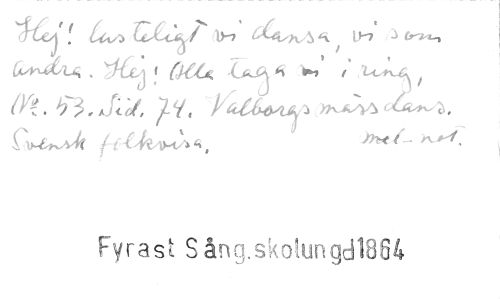 Hej! lusteligt vi dansa, vi som
andra. Hej! Alla taga vi i ring,
No. 53. Sid. 74. Valborgsmässdans.
Svensk folkvisa. mel-not.
Fyrast Sång.skolungd1864